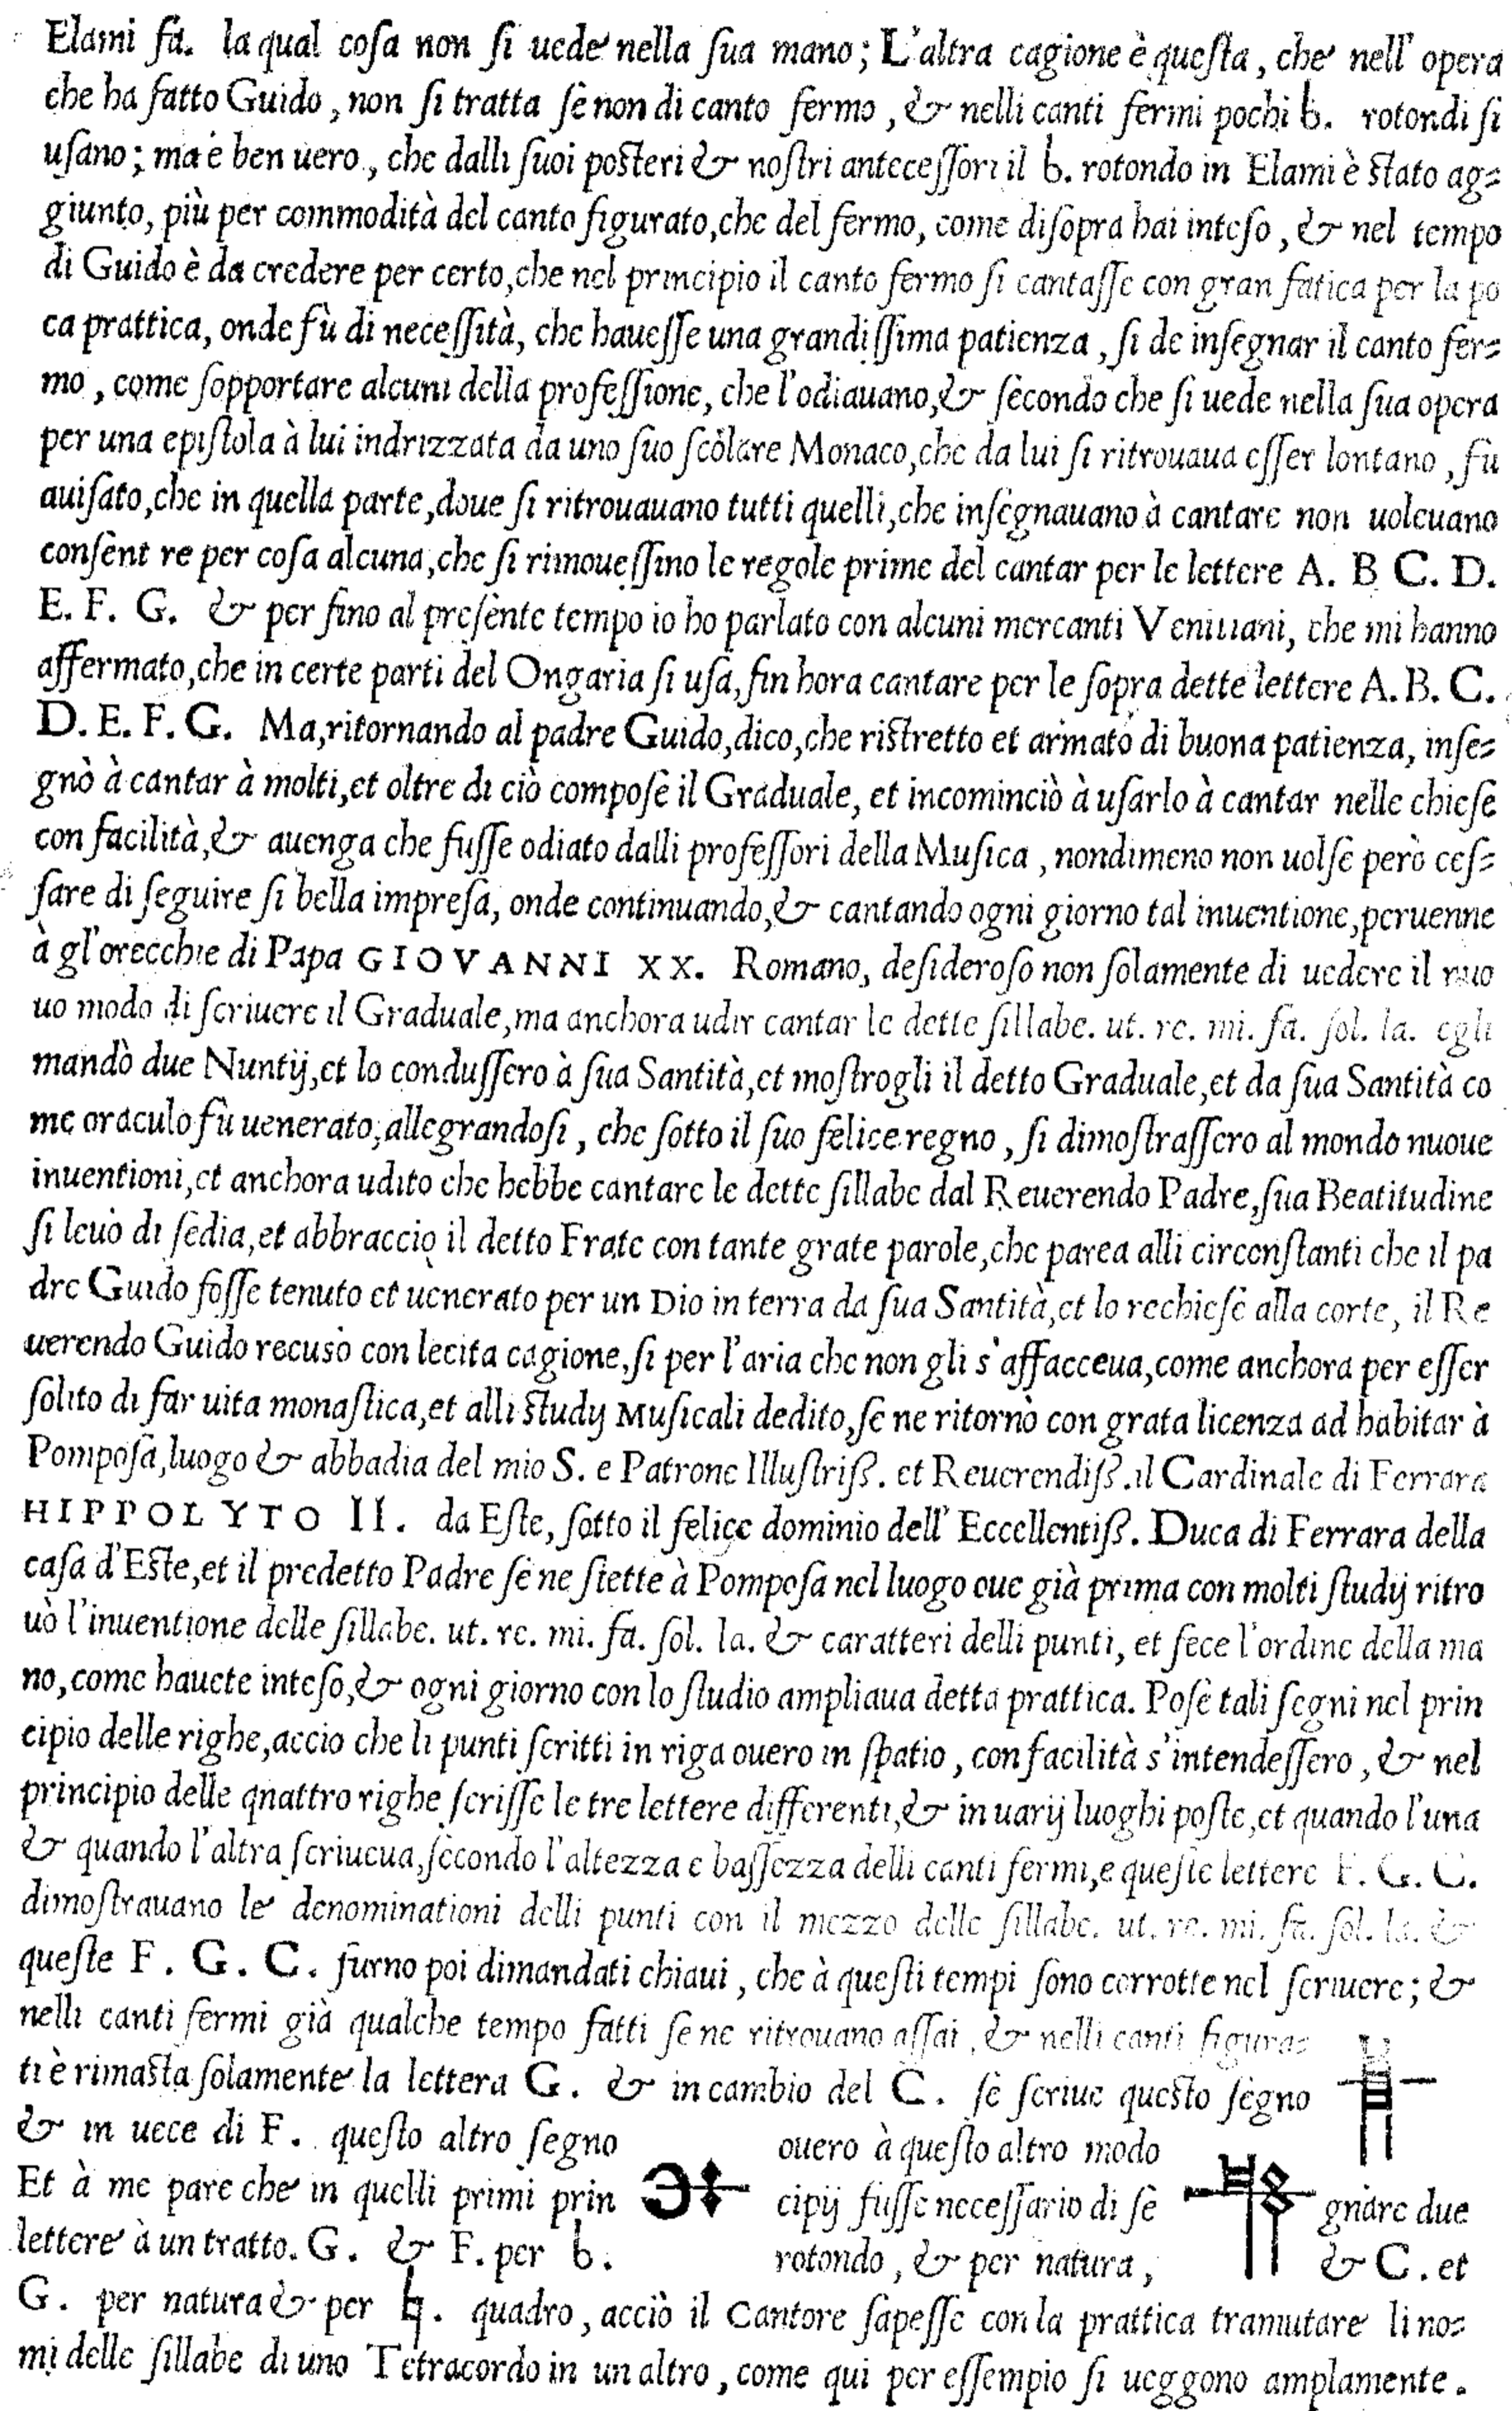 Elami fa. la qual cosa non si uede nella sua mano; L'altra cagione è questa, che nell' opera
che ha fatto Guido, non si tratta se non di canto fermo, & nelli canti fermi pochi b. rotondi si
usano; ma è ben uero, che dalli suoi posteri & nostri antecessori il b. rotondo in Elami è stato ag=
giunto, più per commodità del canto figurato, che del fermo, come disopra hai inteso, & nel tempo
di Guido è da credere per certo, che nel principio il canto fermo si cantasse con gran fatica per la po
ca prattica, onde fù di necessità, che hauesse una grandissima patienza, si de insegnar il canto fer=
mo, come sopportare alcuni della professione, che l'odiauano, & secondo che si uede nella sua opera
per una epistola à lui indrizzata da uno suo scolare Monaco, che da lui si ritrouaua esser lontano, fu
auisato, che in quella parte, doue si ritrouauano tutti quelli, che insegnauano à cantare non uoleuano
consent re per cosa alcuna, che si rimouessino le regole prime del cantar per le lettere A. B C. D.
E. F. G. & per fino al presente tempo io ho parlato con alcuni mercanti Venitiani, che mi hanno
affermato, che in certe parti del Ongaria si usa, fin hora cantare per le sopra dette lettere A. B. C.
D. E. F. G. Ma, ritornando al padre Guido, dico, che ristretto et armato di buona patienza, inse=
gnò à cantar à molti, et oltre di ciò compose il Graduale, et incominciò à usarlo à cantar nelle chiese
con facilità, & auenga che fusse odiato dalli professori della Musica, nondimeno non uolse però ces=
sare di seguire si bella impresa, onde continuando, & cantando ogni giorno tal inuentione, peruenne
à gl'orecchie di Papa GIOVANNI XX. Romano, desideroso non solamente di uedere il nuo
uo modo di scriuere il Graduale, ma anchora udir cantar le dette sillabe. ut. re. mi. fa. sol. la. egli
mandò due Nuntij, et lo condussero à sua Santità, et mostrogli il detto Graduale, et da sua Santità co
me oraculo fù uenerato, allegrandosi, che sotto il suo felice regno, si dimostrassero al mondo nuoue
inuentioni, et anchora udito che hebbe cantare le dette sillabe dal Reuerendo Padre, sua Beatitudine
si leuò di sedia, et abbracciò il detto Frate con tante grate parole, che parea alli circonstanti che il pa
dre Guido fosse tenuto et uenerato per un Dio in terra da sua Santità, et lo rechiese alla corte, il Re
uerendo Guido recusò con lecita cagione, si per l'aria che non gli s'affacceua, come anchora per esser
solito di far uita monastica, et alli studij Musicali dedito, se ne ritornò con grata licenza ad habitar à
Pomposa, luogo & abbadia del mio S. e Patrone Illustriss. et Reuerendiss. il Cardinale di Ferrara
HIPPOLYTO II. da Este, sotto il felice dominio dell' Eccellentiss. Duca di Ferrara della
casa d'Este, et il predetto Padre se ne stette à Pomposa nel luogo oue già prima con molti studij ritro
uò l'inuentione delle sillabe. ut. re. mi. fa. sol. la. & caratteri delli punti, et fece l'ordine della ma
no, come hauete inteso, & ogni giorno con lo studio ampliaua detta prattica. Pose tali segni nel prin
cipio delle righe, accio che li punti scritti in riga ouero in spatio, con facilità s'intendessero, & nel
principio delle qnattro righe scrisse le tre lettere differenti, & in uarij luoghi poste, et quando l'una
& quando l'altra scriueua, secondo l'altezza e bassezza delli canti fermi, e queste lettere F. G. C.
dimostrauano le denominationi delli punti con il mezzo delle sillabe. ut. re. mi. fa. sol. la. &
queste F. G. C. furno poi dimandati chiaui, che à questi tempi sono corrotte nel scriuere; &
nelli canti fermi già qualche tempo fatti se ne ritrouano assai, & nelli canti figura=
ti è rimasta solamente la lettera G. & in cambio del C. se scriue questo segno
& in uece di F. questo altro segno ouero à questo altro modo
Et à me pare che in quelli primi prin cipij fusse necessario di se gnare due
lettere à un tratto. G. & F. per b. rotondo, & per natura, & C. et
G. per natura & per ♮. quadro, acciò il Cantore sapesse con la prattica tramutare li no=
mi delle sillabe di uno Tetracordo in un altro, come qui per essempio si ueggono amplamente.